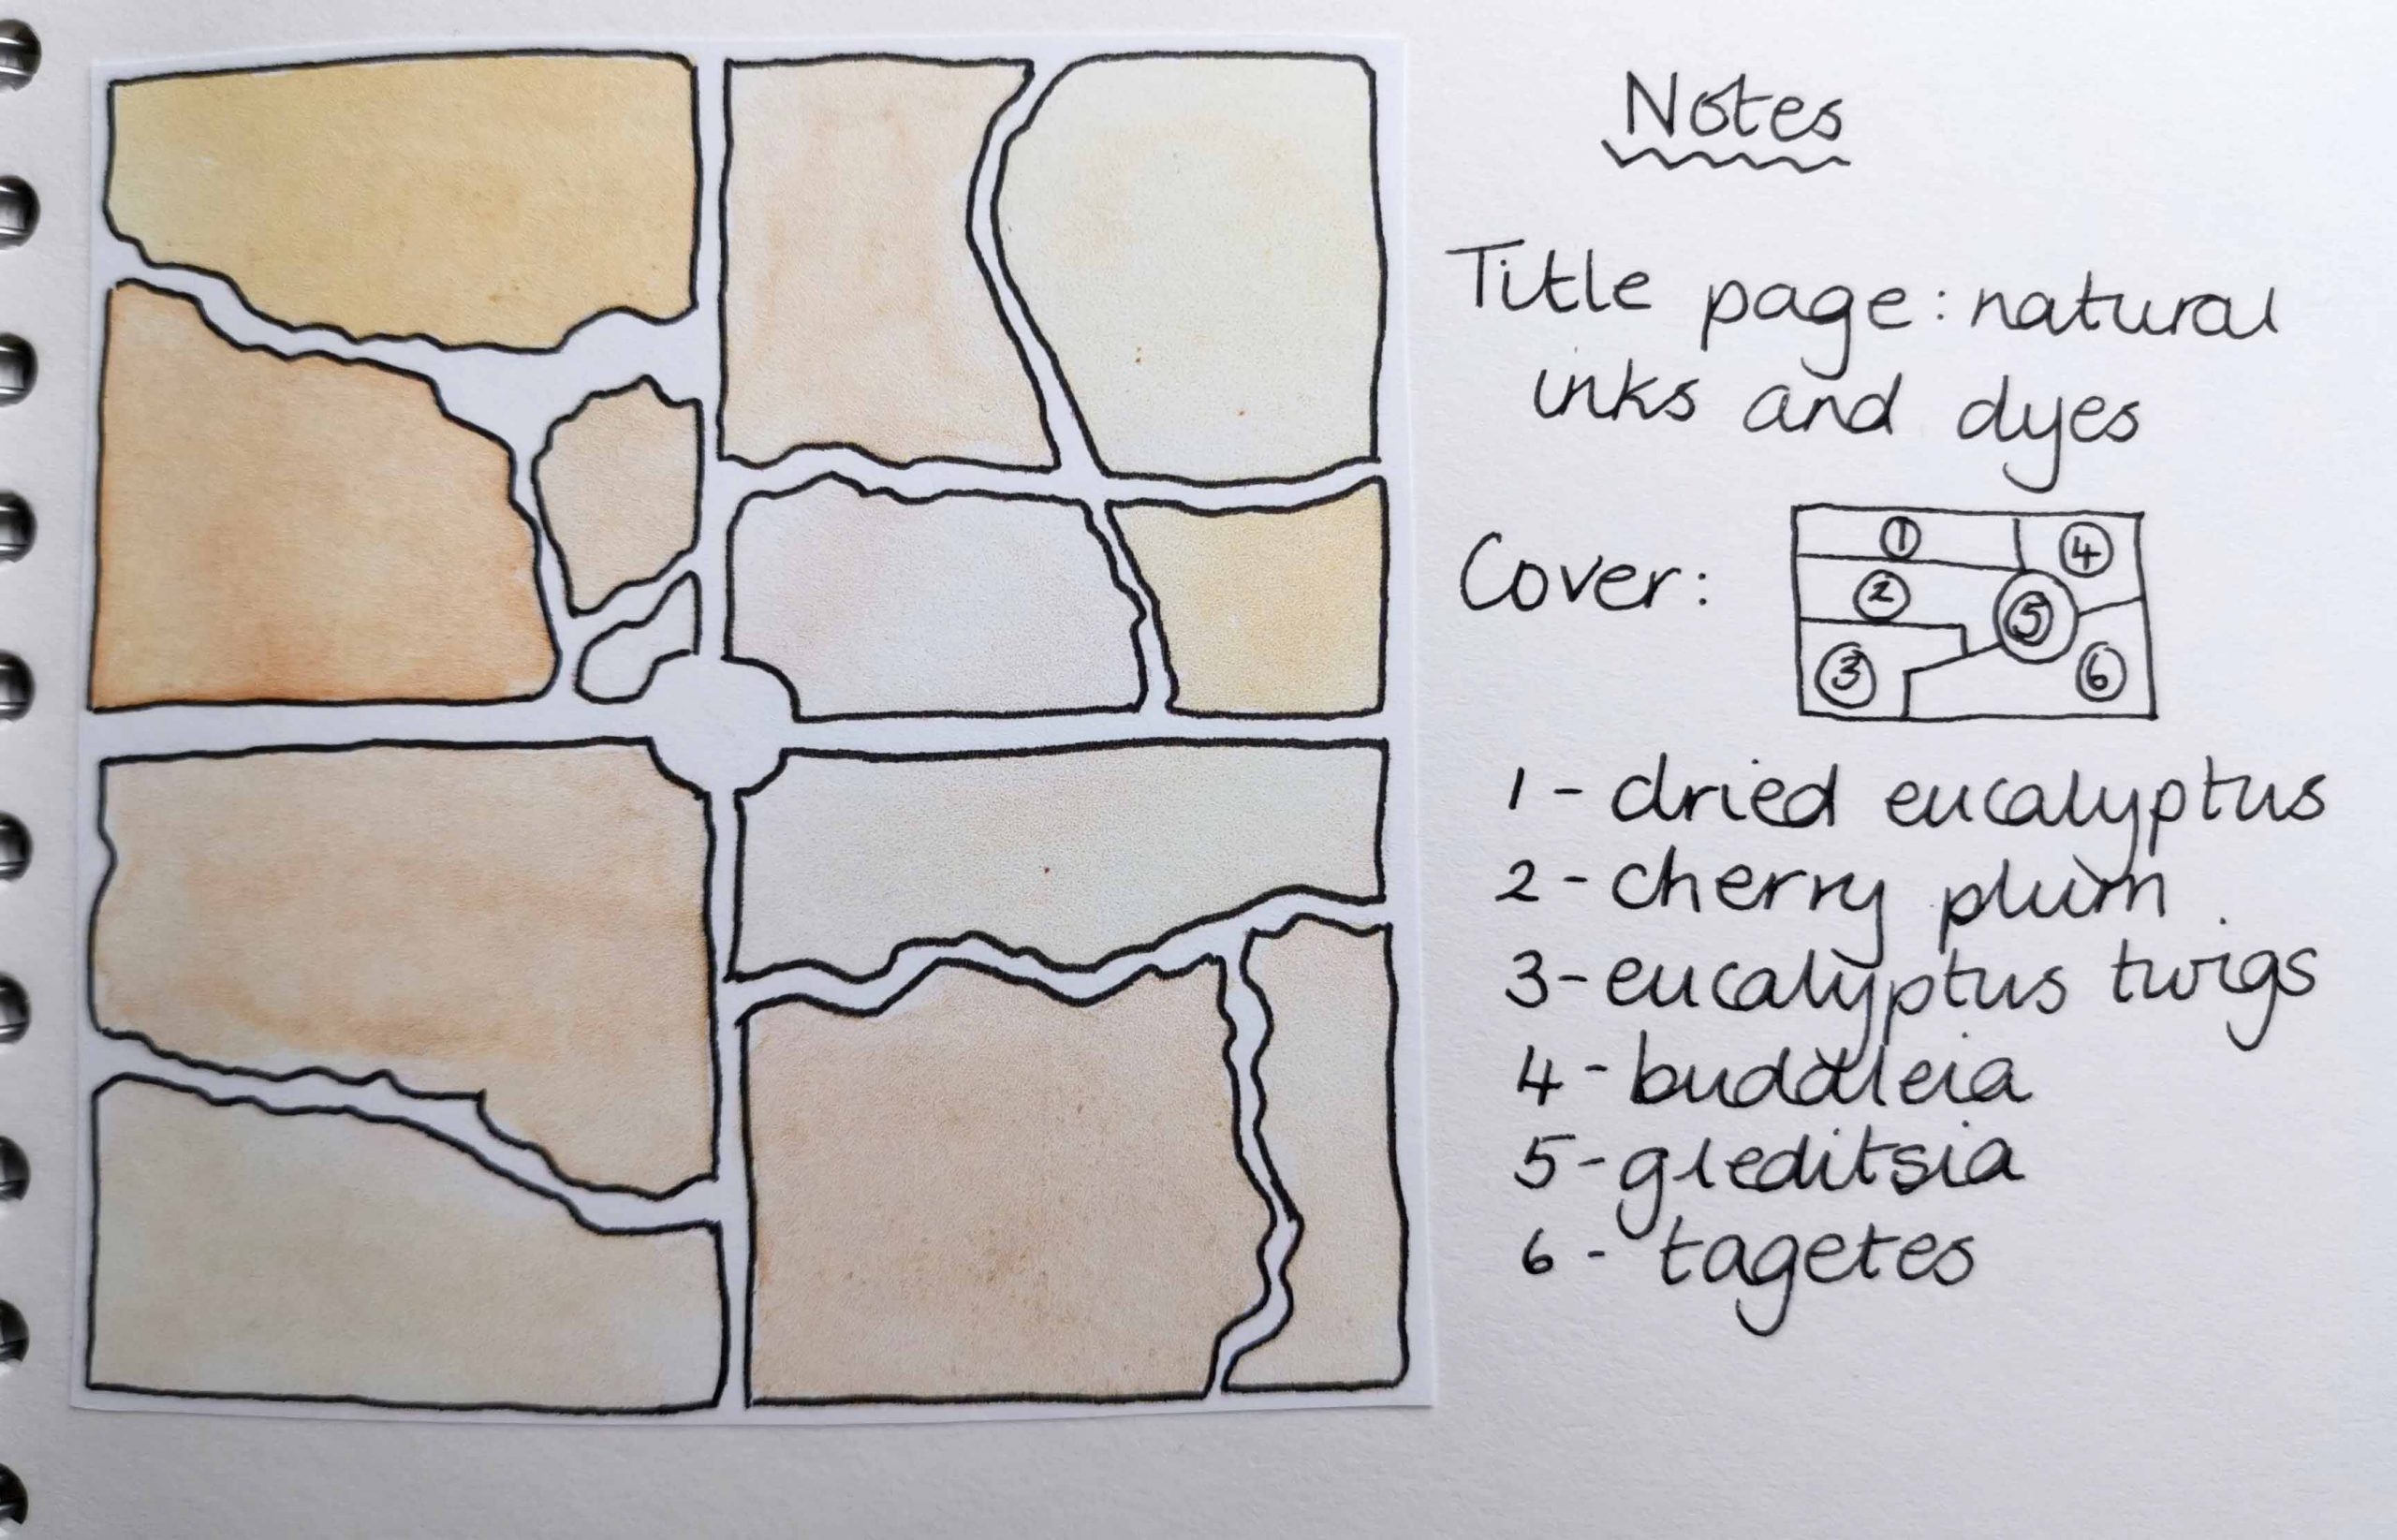 Notes
Title page: natural
inks and dyes
Cover:
1
4
2
5
3
6
1 - dried eucalyptus
2 - cherry plum
3 - eucalyptus twigs
4 - buddleia
5 - gleditsia
6 - tagetes